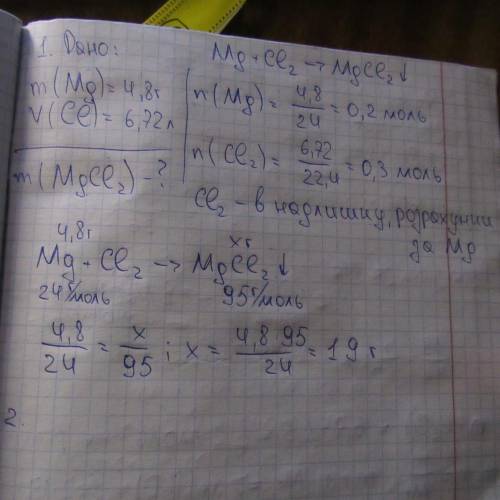 1. Дано:
Mg + Cl₂ → MgCl₂↓
m(Mg) = 4,8г
V(Cl) = 6,72 л
m(MgCl₂) - ?
n(Mg) = 4,8/24 = 0,2 моль
n(Cl₂) = 6,72/22,4 = 0,3 моль
Cl₂ - в надлишку, розрахунки
за Mg
4,8г xг
Mg + Cl₂ → MgCl₂↓
24г/моль 95г/моль
4,8/24 = x/95 ; x = 4,8 95/24 = 19 г
2.